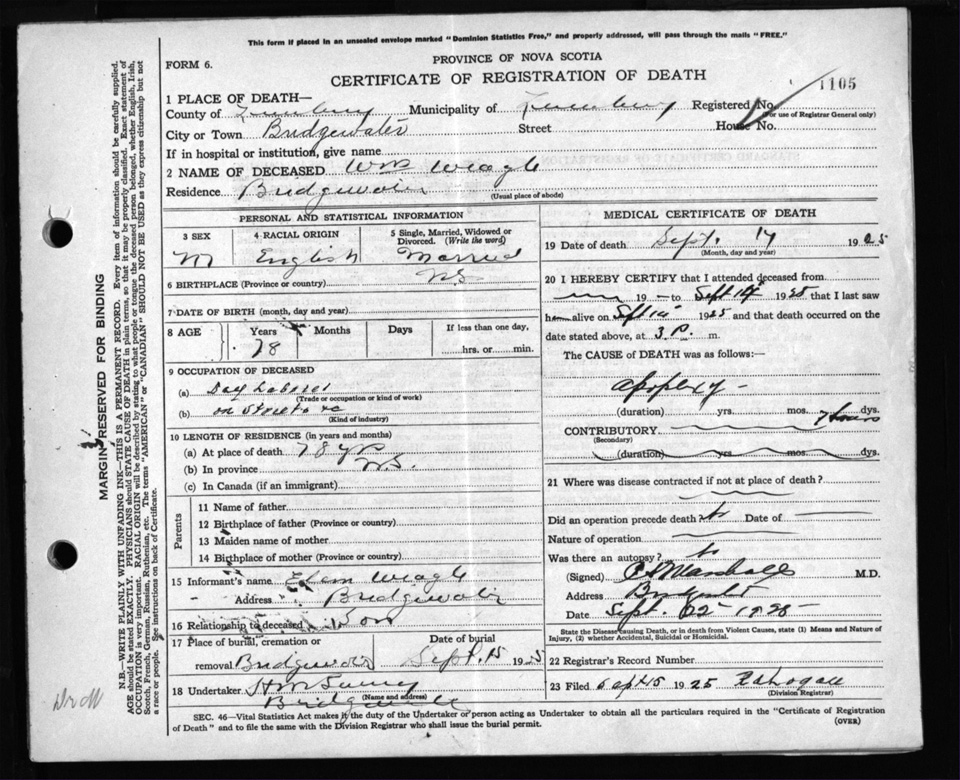 This form if placed in an unsealed envelope marked "Dominion Statistics Free," and properly addressed, will pass through the mails "FREE."
FORM 6.
PROVINCE OF NOVA SCOTIA
CERTIFICATE OF REGISTRATION OF DEATH
1105
1 PLACE OF DEATH—
County of Lunenburg Municipality of Lunenburg Registered No.
(For use of Registrar General only)
City or Town Bridgewater Street House No.
If in hospital or institution, give name
2 NAME OF DECEASED Wm
Residence Bridgewater
(Usual place of abode)
PERSONAL AND STATISTICAL INFORMATION
3 SEX
M
4 RACIAL ORIGIN
English
5 Single, Married, Widowed or Divorced. (Write the word)
Married
6 BIRTHPLACE (Province or country) N.S.
7 DATE OF BIRTH (month, day and year)
8 AGE Years Months Days If less than one day,
78 hrs. or min.
9 OCCUPATION OF DECEASED
(a) Day Laborer
(Trade or occupation or kind of work)
(b) on Streets &c
(Kind of industry)
10 LENGTH OF RESIDENCE (in years and months)
(a) At place of death 78 yrs
(b) In province N.S.
(c) In Canada (if an immigrant)
Parents
11 Name of father
12 Birthplace of father (Province or country)
13 Maiden name of mother
14 Birthplace of mother (Province or country)
15 Informant's name
Address Bridgewater
16 Relationship to deceased Son
17 Place of burial, cremation or Date of burial
removal Bridgewater Sept. 15 1925
18 Undertaker
(Name and address)
Bridgewater
MEDICAL CERTIFICATE OF DEATH
19 Date of death Sept. 1925
(Month, day and year)
20 I HEREBY CERTIFY that I attended deceased from
19 to Sept 1925 that I last saw
h alive on Sept 1925 and that death occurred on the
date stated above, at 3 P. m.
The CAUSE of DEATH was as follows:—
Apoplexy —
(duration) yrs. mos. 7 hours dys.
CONTRIBUTORY
(Secondary)
(duration) yrs. mos. dys.
21 Where was disease contracted if not at place of death?
Did an operation precede death? No Date of
Nature of operation
Was there an autopsy? No
(Signed) Marshall M.D.
Address Bridgewater
Date Sept. 22 1925
State the Disease causing Death, or in death from Violent Causes, state (1) Means and Nature of Injury, (2) whether Accidental, Suicidal or Homicidal.
22 Registrar's Record Number
23 Filed Sept 15 1925
(Division Registrar)
SEC. 46—Vital Statistics Act makes it the duty of the Undertaker or person acting as Undertaker to obtain all the particulars required in the "Certificate of Registration
of Death" and to file the same with the Division Registrar who shall issue the burial permit.
(OVER)
MARGIN RESERVED FOR BINDING
N.B.—WRITE PLAINLY WITH UNFADING INK—THIS IS A PERMANENT RECORD. Every item of information should be carefully supplied.
AGE should be stated EXACTLY. PHYSICIANS should STATE CAUSE OF DEATH in plain terms, so that it may be properly classified. Exact statement of
OCCUPATION is very important. RACIAL ORIGIN will be described by stating to what people or tongue the deceased person belonged, whether English, Irish,
Scotch, French, German, Russian, Ruthenian, etc. The terms "AMERICAN" or "CANADIAN" SHOULD NOT BE USED as they express citizenship but not
a race or people. See instructions on back of Certificate.